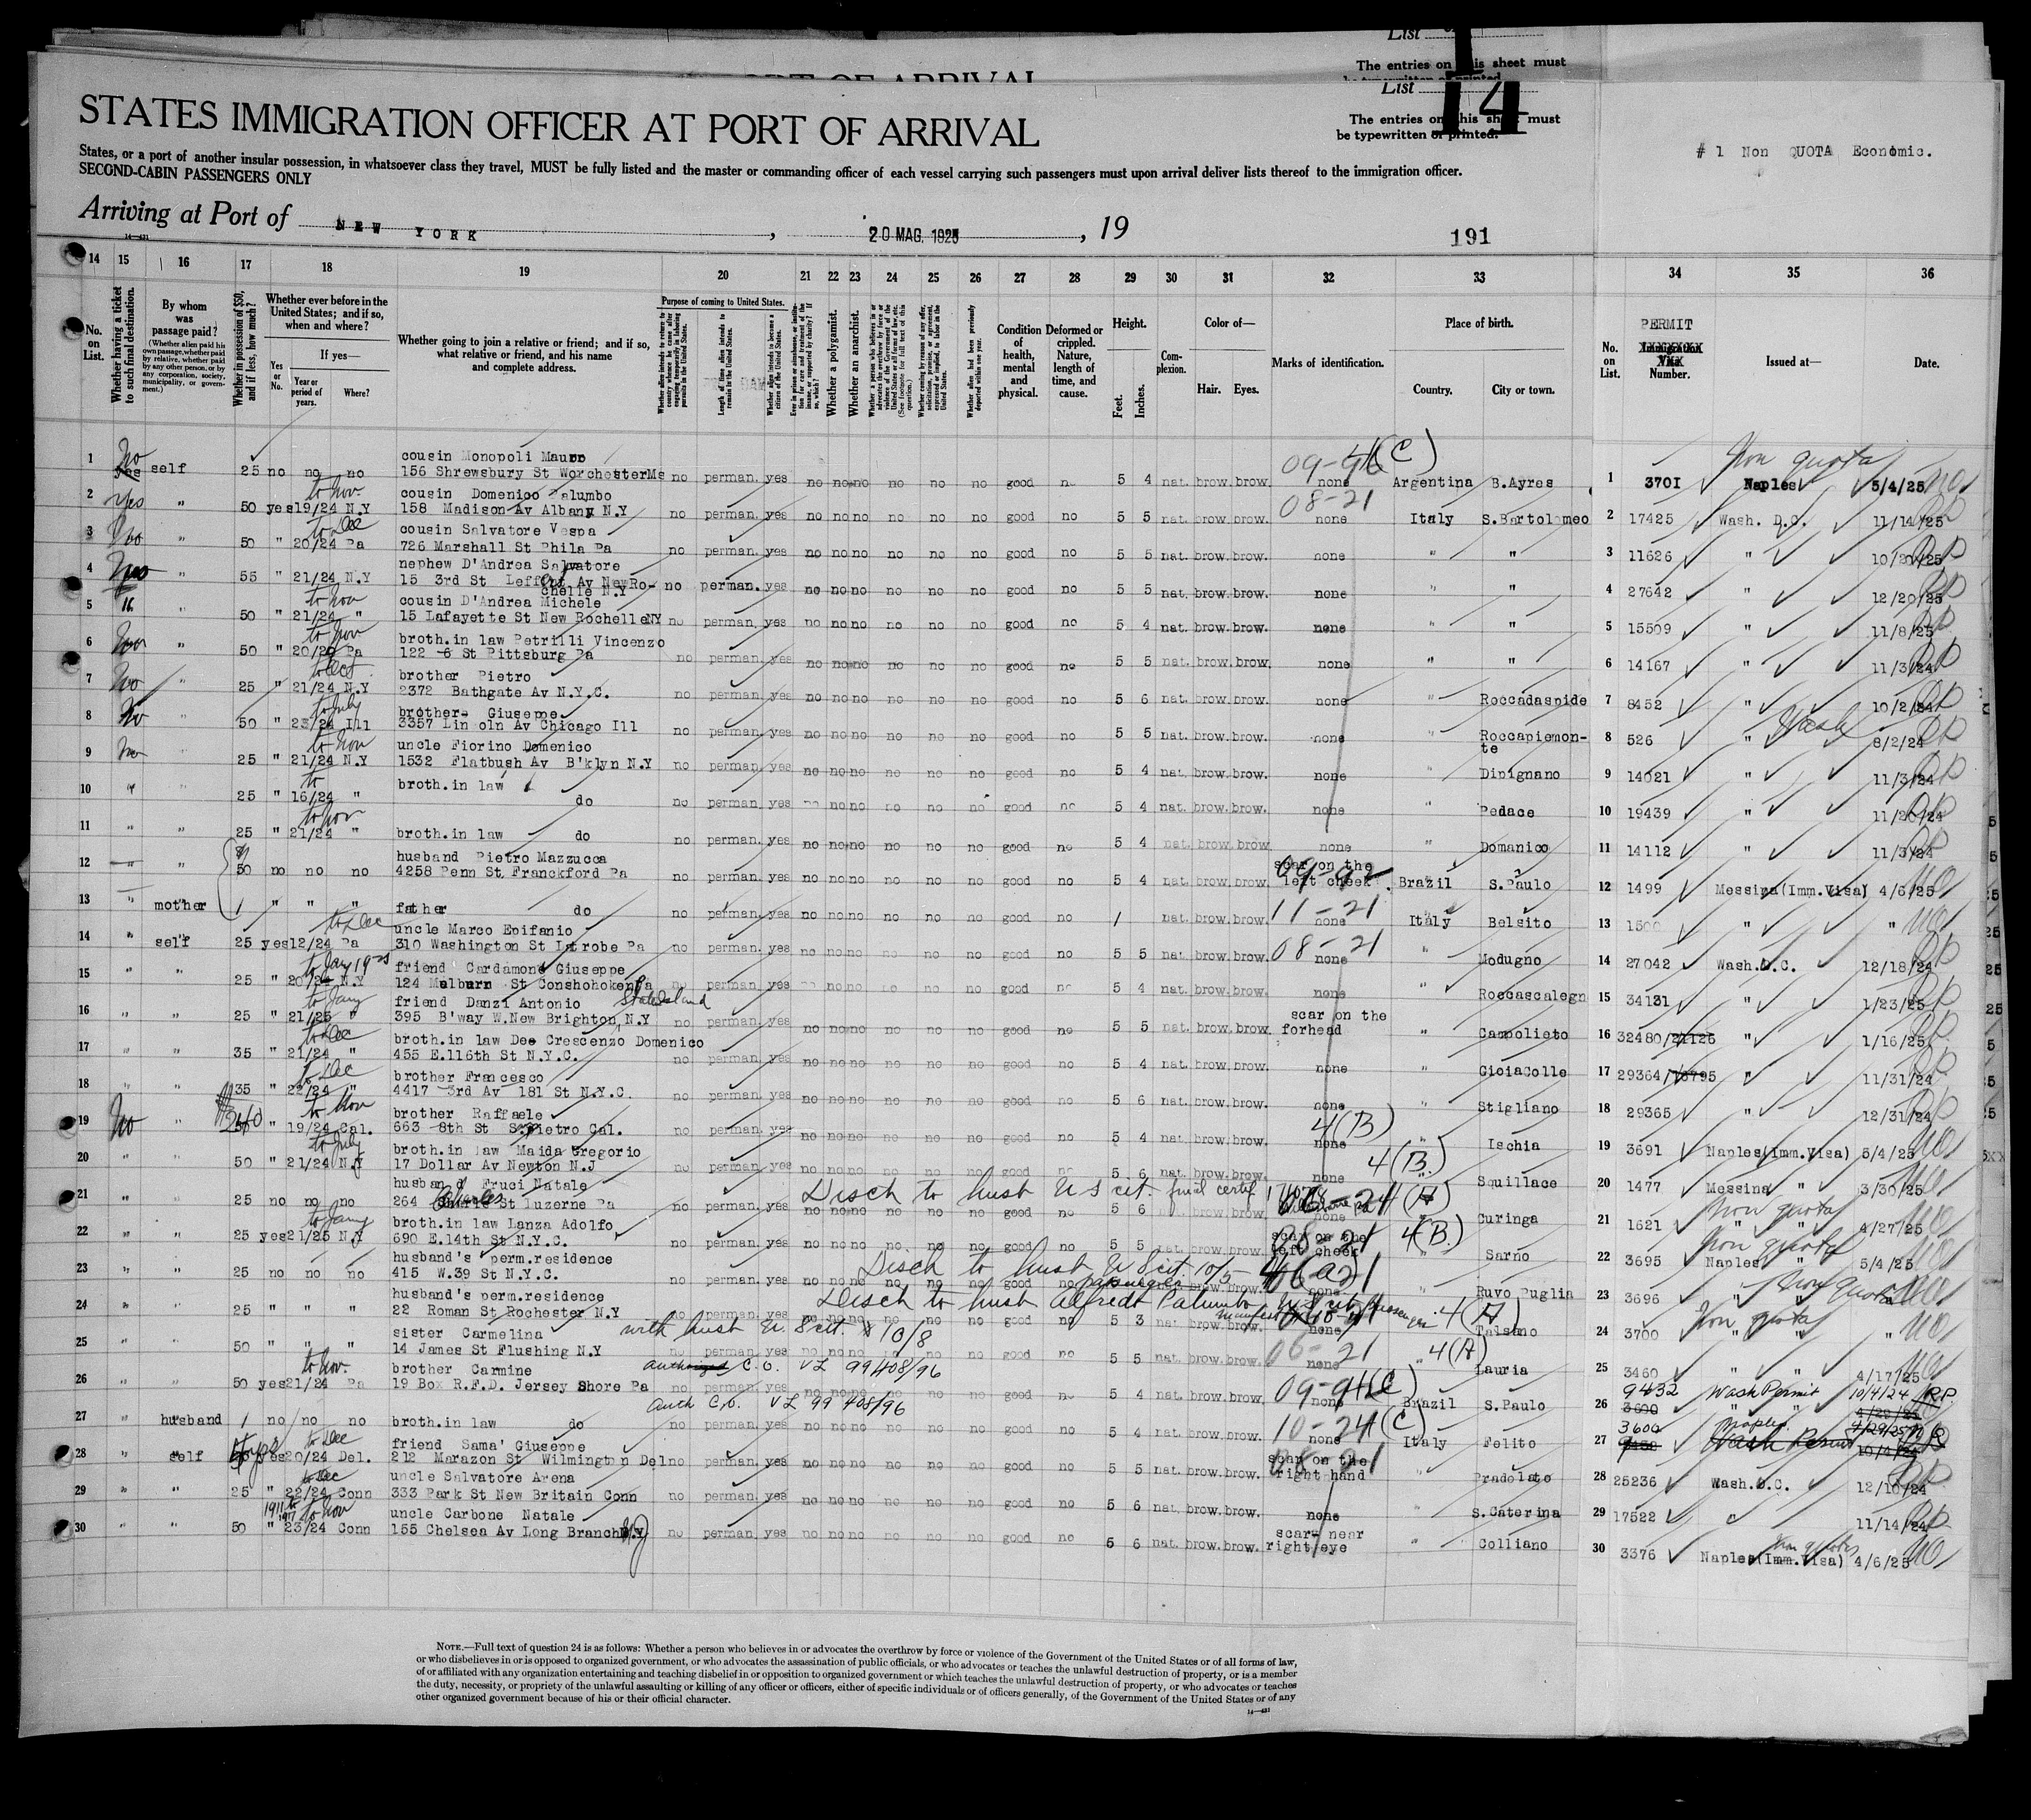 List
The entries on this sheet must
List 14
The entries on this sheet must
be typewritten or printed.
STATES IMMIGRATION OFFICER AT PORT OF ARRIVAL
# 1 Non QUOTA Economic.
States, or a port of another insular possession, in whatsoever class they travel, MUST be fully listed and the master or commanding officer of each vessel carrying such passengers must upon arrival deliver lists thereof to the immigration officer.
SECOND-CABIN PASSENGERS ONLY
Arriving at Port of NEW YORK, 20 MAG. 1925, 19
191
14 15 16 17 18 19 20 21 22 23 24 25 26 27 28 29 30 31 32 33 34 35 36
No. on List.
Whether having a ticket to such final destination.
By whom was passage paid?
(Whether alien paid his own passage, whether paid by relative, whether paid by any other person, or by any corporation, society, municipality, or government.)
Whether in possession of $50, and if less, how much?
Whether ever before in the United States; and if so, when and where?
Yes or No.
If yes—
Year or period of years.
Where?
Whether going to join a relative or friend; and if so, what relative or friend, and his name and complete address.
Purpose of coming to United States.
Whether alien intends to return to country whence he came after engaging temporarily in laboring pursuits in the United States.
Length of time alien intends to remain in the United States.
Whether alien intends to become a citizen of the United States.
Whether a polygamist.
Whether an anarchist.
Whether alien had been previously deported within one year.
Condition of health, mental and physical.
Deformed or crippled. Nature, length of time, and cause.
Height.
Feet. Inches.
Complexion.
Color of—
Hair. Eyes.
Marks of identification.
Place of birth.
Country. City or town.
No. on List.
PERMIT
Number.
Issued at—
Date.
1 No self 25 no no no cousin Monopoli Mauro
156 Shrewsbury St WorchesterMs no perman. yes no no no no no no good no 5 4 nat. brow. brow. none Argentina B.Ayres 1 3701 Naples 5/4/25
Non quota
2 yes " 50 yes 19/24 N.Y to Nov cousin Domenico Palumbo
158 Madison Av Albany N.Y no perman. yes no no no no no no good no 5 5 nat. brow. brow. 08-21 none Italy S.Bartolomeo 2 17425 Wash. D.C. 11/14/25
3 No " 50 " 20/24 Pa to Dec cousin Salvatore Vespa
726 Marshall St Phila Pa no perman. yes no no no no no no good no 5 5 nat. brow. brow. none " " 3 11626 " 10/20/25
4 " 55 " 21/24 N.Y nephew D'Andrea Salvatore
15 3rd St Av NewRo-
chelle N.Y no perman. yes no no no no no no good no 5 5 nat. brow. brow. none " " 4 27642 " 12/20/25
5 " 50 " 21/24 " to Nov cousin D'Andrea Michele
15 Lafayette St New Rochelle NY no perman. yes no no no no no no good no 5 4 nat. brow. brow. none " " 5 15509 " 11/8/25
6 No " 50 " Pa to Nov broth.in law Petrilli Vincenzo
122 -6 St Pittsburg Pa no perman. yes no no no no no no good no 5 5 nat. brow. brow. none " " 6 14167 " 11/3/24
7 No " 25 " 21/24 N.Y to Oct brother Pietro
2372 Bathgate Av N.Y.C. no perman. yes no no no no no no good no 5 6 nat. brow. brow. none " Roccadaspide 7 8452 " 10/2/24
8 No " 50 " 23/24 Ill to July brother- Giuseppe
3357 Lin oln Av Chicago Ill no perman. yes no no no no no no good no 5 5 nat. brow. brow. none " Roccapiemon-
te 8 526 " Wash 8/2/24
9 No " 25 " 21/24 N.Y to Nov uncle Fiorino Domenico
1532 Flatbush Av B'klyn N.Y no perman. yes no no no no no no good no 5 4 nat. brow. brow. none " Dipignano 9 14021 " 11/3/24
10 " " 25 " 16/24 " to broth.in law do no perman. yes no no no no no no good no 5 4 nat. brow. brow. none " Pedace 10 19439 " 11/20/24
11 " " 25 " 21/24 " to Nov broth.in law do no perman. yes no no no no no no good no 5 4 nat. brow. brow. none " Domanico 11 14112 " 11/3/24
12 " " 50 no no no husband Pietro Mazzucca
4258 Penn St Franckford Pa no perman. yes no no no no no no good no 5 4 nat. brow. brow. scar on the
left cheek Brazil S.Paulo 12 1499 Messina(Imm.Visa) 4/6/25
13 " mother / " " " father do no perman. yes no no no no no no good no / nat. brow. brow. 11-21 none Italy Belsito 13 1500 " " "
14 " self 25 yes 12/24 Pa to Dec uncle Marco Epifanio
310 Washington St Latrobe Pa no perman. yes no no no no no no good no 5 5 nat. brow. brow. 08-21 none " Modugno 14 27042 Wash.D.C. 12/18/24
15 " " 25 " N.Y friend Cardamone Giuseppe
124 St Conshohoken Pa no perman. yes no no no no no no good no 5 4 nat. brow. brow. none " Roccascalegn 15 34131 " 1/23/25
16 " " 25 " 21/25 " to Jany friend Danzi Antonio
395 B'way W.New Brighton, N.Y no perman. yes no no no no no no good no 5 5 nat. brow. brow. scar on the
forhead " Campolieto 16 32480 " 1/16/25
17 " " 35 " 21/24 " to Dec broth.in law Deo Crescenzo Domenico
455 E.116th St N.Y.C. no perman. yes no no no no no no good no 5 4 nat. brow. brow. none " GioiaColle 17 29364 " 11/31/24
18 " " 35 " 22/24 " to Dec brother Francesco
4417 3rd Av 181 St N.Y.C. no perman. yes no no no no no no good no 5 6 nat. brow. brow. none " Stigliano 18 29365 " 12/31/24
19 No " $240 " 19/24 Cal. to Nov brother Raffaele
663 8th St S.Pietro Cal. no perman. yes no no no no no no good no 5 4 nat. brow. brow. 4(B) none " Ischia 19 3691 Naples(Imm.Visa) 5/4/25
20 " " 50 " 21/24 N.Y to July broth.in law Maida Gregorio
17 Dollar Av Newton N.J no perman. yes no no no no no no good no 5 6 nat. brow. brow. none 4(B) " Squillace 20 1477 Messina " 3/30/25
21 " " 25 no no no husband Fruci Natale
264 Charles St Luzerne Pa no perman. yes no no no no no no good no 5 6 brow. brow. none 4(A) Curinga 21 1621 " " 4/27/25
Disch to husb U S cit. final certif
Non quota
22 " " 25 yes 21/25 N.Y to Jany broth.in law Lanza Adolfo
690 E.14th St N.Y.C. no perman. yes no no no no no no good no 5 5 nat. brow. brow. scar on the
left cheek 4(B) Sarno 22 3695 Naples " 5/4/25
Non quota
23 " " 25 no no no husband's perm.residence
415 W.39 St N.Y.C. no perman. yes no no no no no no good no brow. brow. none Ruvo Puglia 23 3696 " "
Disch to husb U S cit. 10/5
Non quota
24 " " 25 " " " husband's perm.residence
22 Roman St Rochester N.Y no perman. yes no no no no no no good no 5 3 nat. brow. brow. none 4(A) 24 3700 " " "
Disch to husb Alfredo Palumbo U S cit passenger
Non quota
25 " " 50 " " " sister Carmelina
14 James St Flushing N.Y no perman. yes no no no no no no good no 5 5 nat. brow. brow. 06-21 none 4(A) Lauria 25 3460 " " 4/17/25
with husb U. S cit. 10/8
26 " " 50 yes 21/24 Pa to Nov. brother Carmine
19 Box R.F.D. Jersey Shore Pa no perman. yes no no no no no no good no 5 4 nat. brow. brow. none Brazil S.Paulo 26 9432 Wash Permit 10/4/24 R.P.
C.O. VL 99408/96
27 " husband / no no no broth.in law do no perman. yes no no no no no no good no 5 4 nat. brow. brow. 10-24(C) none Italy Felito 27 3600 Naples 4/29/25
Auth C.O. VL 99408/96
28 " self yes 20/24 Del. to Dec friend Sama' Giuseppe
212 Marazon St Wilmington Del no perman. yes no no no no no no good no 5 5 nat. brow. brow. scar on the
right hand " Pradolato 28 25236 Wash.D.C. 12/10/24
29 " " 25 " 22/24 Conn to Dec uncle Salvatore Arena
333 Park St New Britain Conn no perman. yes no no no no no no good no 5 6 nat. brow. brow. none " S.Caterina 29 17522 " 11/14/24
30 " " 50 " 23/24 Conn to Nov uncle Carbone Natale
155 Chelsea Av Long Branch N.J no perman. yes no no no no no no good no 5 6 nat. brow. brow. scar near
right eye " Colliano 30 3376 Naples(Imm.Visa) 4/6/25
Non quota
NOTE.—Full text of question 24 is as follows: Whether a person who believes in or advocates the overthrow by force or violence of the Government of the United States or of all forms of law,
or who disbelieves in or is opposed to organized government, or who advocates the assassination of public officials, or who advocates or teaches the unlawful destruction of property, or is a member
of or affiliated with any organization entertaining and teaching disbelief in or opposition to organized government or which teaches the unlawful destruction of property, or who advocates or teaches
the duty, necessity, or propriety of the unlawful assaulting or killing of any officer or officers, either of specific individuals or of officers generally, of the Government of the United States or of any
other organized government because of his or their official character.